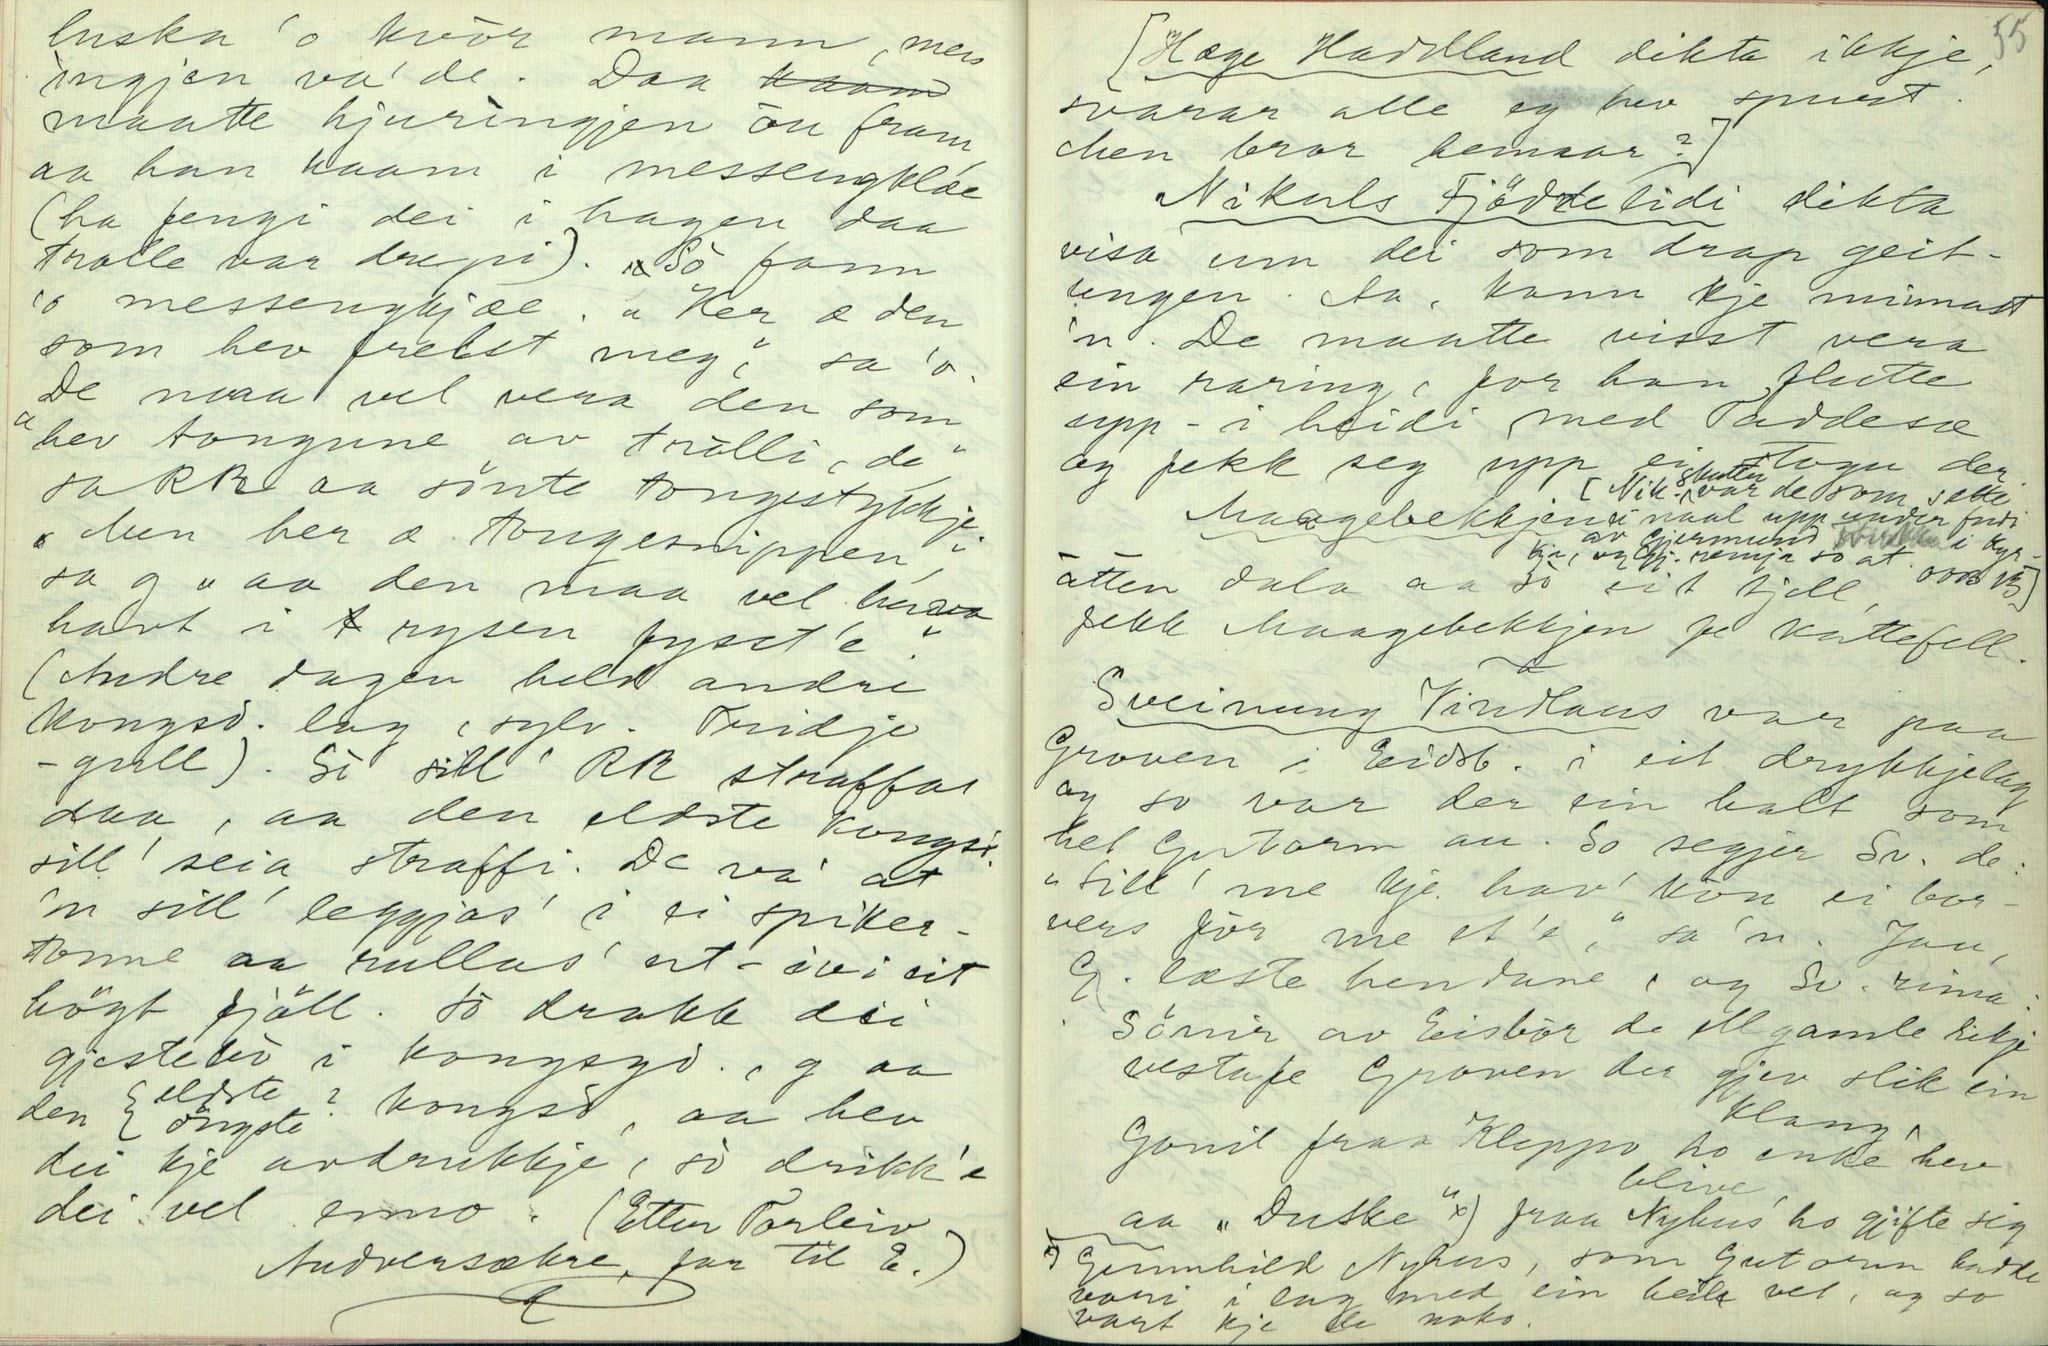 luska 'o kvòr mann, men
ingjen va' de. Daa kaam
maatte hjuringjen òu fram
aa han kaam i messengklæe
(ha fengi dei i hagen daa
trolle var drepi). Sò fann
'o messengkjæe. "Ker æ den
som hev frelst meg," sa 'o.
De mara vel vera den som
"hev tongune av trolli, de"
sa RR aa sònte tongestykkje.
"Men her æ tongesnippen,"
sa g "aa den maa vel hava
havt i rysen fysst'e."
(Andre dagen held andre
kongsd. lag, sylv. Tridje
- gull). Sò sill' RR straffas
daa, aa den eldste kongsd.
sill' seia straffi. De va' at
'n sill' leggjas' i ei spiker-
tonne aa rullas' ut-ivi eit
högt fjöll. Sò drakk dei
gjestebò i kongsgd., g aa
den { eldste ?
{ òngste kongsd, aa hev
dei kje avdrukkje, sò drikk'e
dei vel enno. (Etter Torleiv
Andversækre, far til E.)
55
[Hæge Haddland dikta ikkje,
svarar alle eg hev spurt.
Men bror hennar?]
Nikuls Fjöddelidi dikta
visa um dei som drap geit-
ungen. Aa. kann kje minnast
'n. De maatte visst vera
ein raring, for han flutte
upp-i heidi med Taddesæ
og fekk seg upp ei stogu der.
[Nik. skulten var de som sette
Maagebekkjen
ei naal upp under fudi
av Gjermund i Kyr-
kja, og Gj. remja so at. OOB 13]
åtten dala aa sò eit fjell
fekk Maagebekkjen fe kattefell.
Sveinung Vindlaus var paa
Groven i Eidsb. i eit drykkjelag
og so var der ein halt som
het Gutorm au. So segjer Sv. de:
"Sill' me kje hav' kòn ei bor-
vers fòr me et'e," sa 'n. Jau,
G. læste hendune, og Sv. rima:
Sònir av Eisbòr de ell gamle rikje
vestafe Groven der gjev slik ein
klang,
Gonil fraa Kleppo ho enke hev
blive
aa "Duske" x) fraa Nyhus ho gjifte sig
x) Gunnhild Nyhus, som Gutorm hadde
vori i lag med ein heile vet, og so
vart kje de noko.